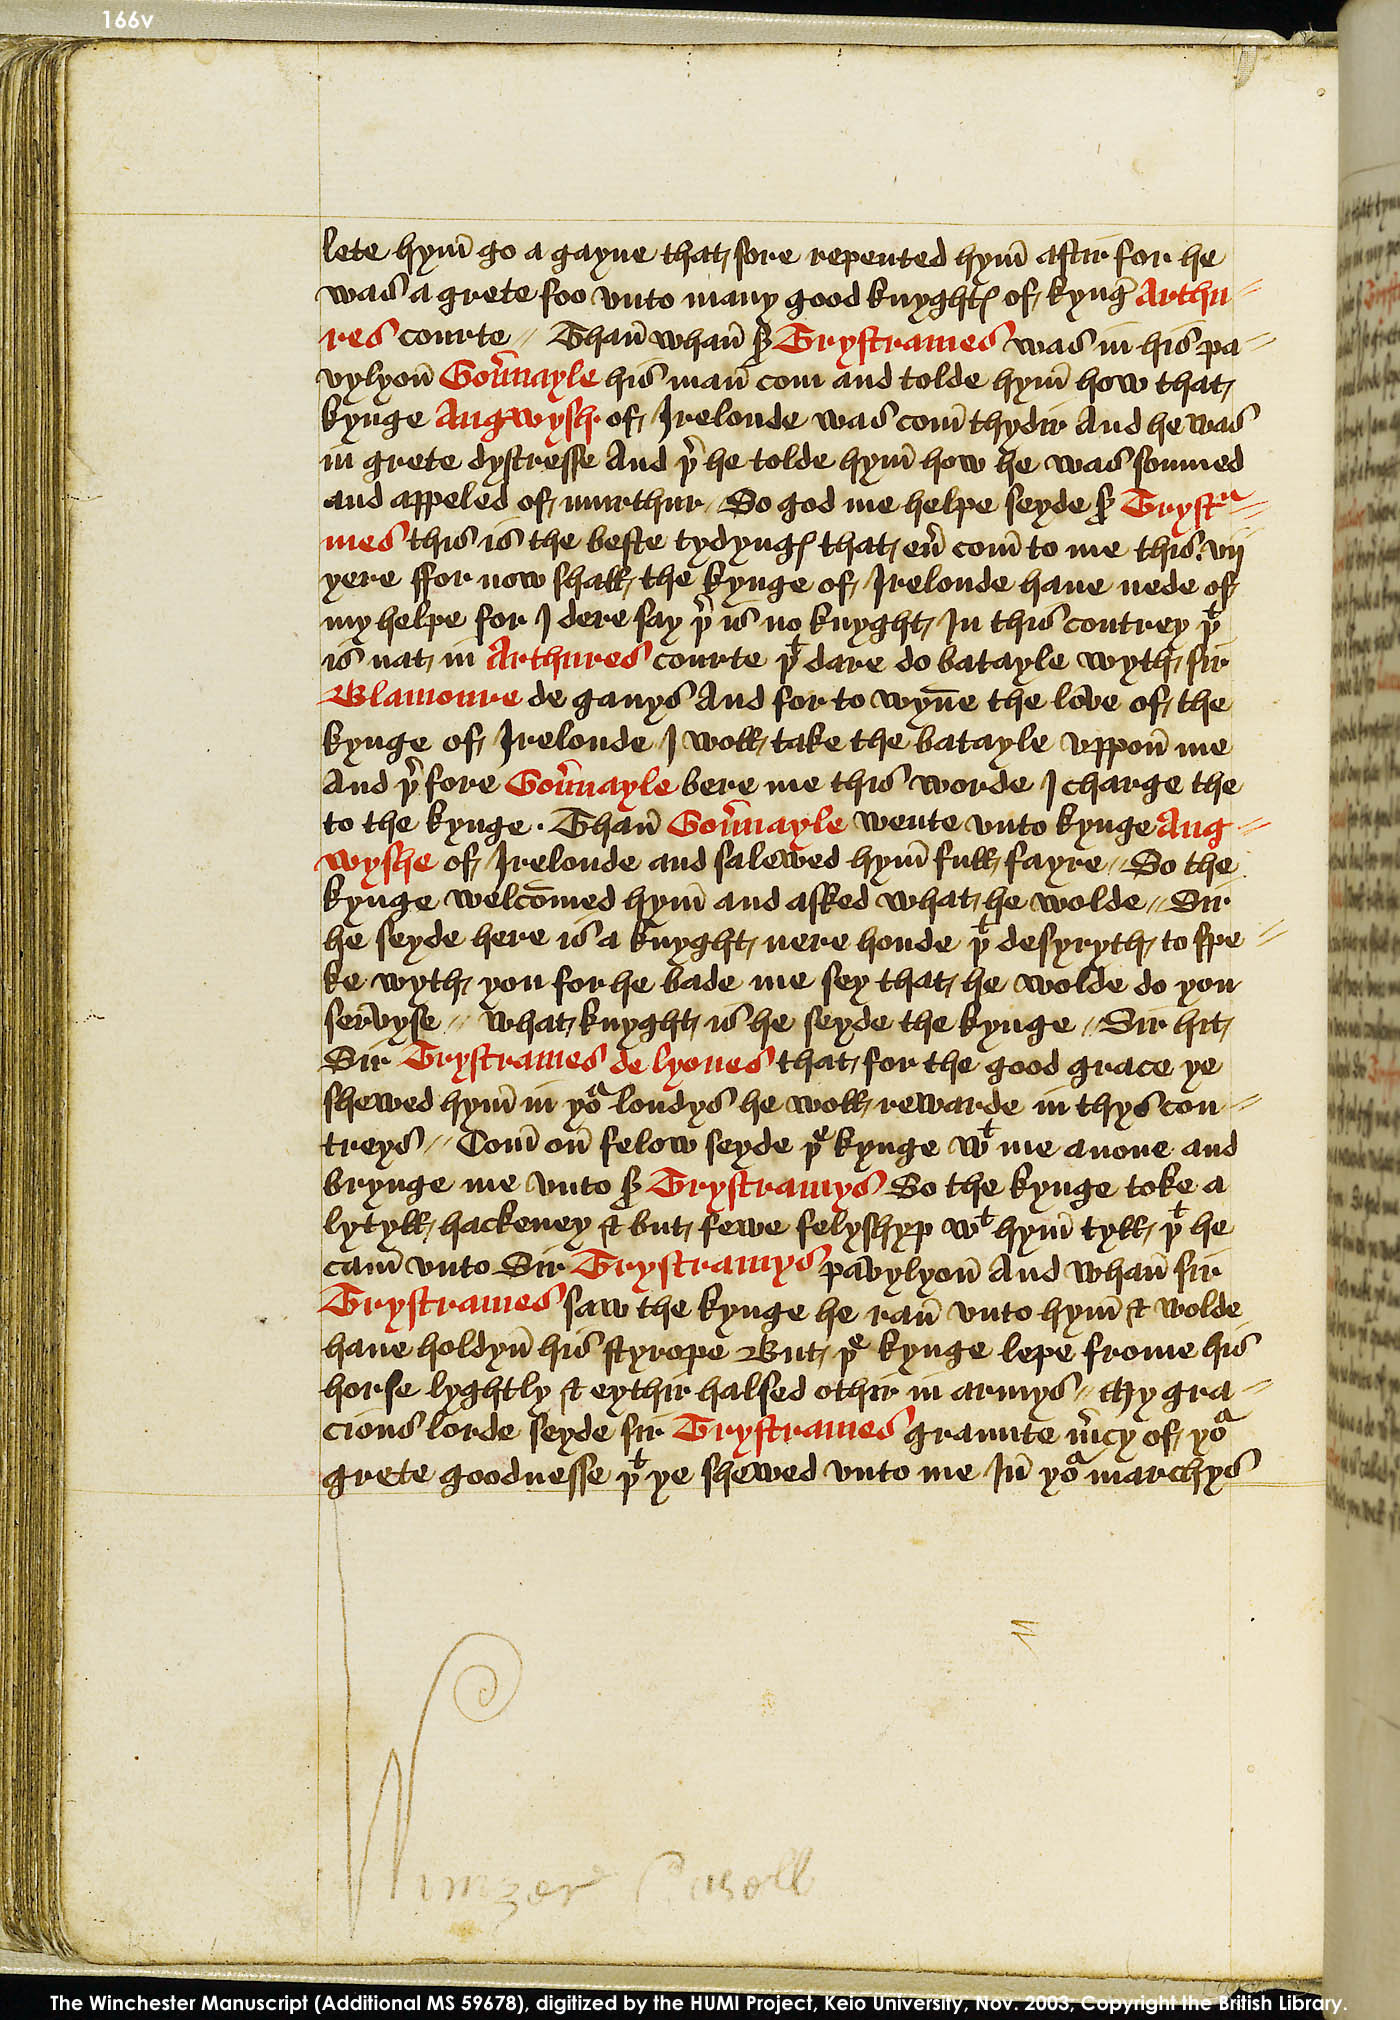 166v
lete hym̄ go a gayne that sore repented hym̄ aftir for he
was a grete foo vnto many good knyghtꝭ of kynḡ Arthu⸗
res courte ⸗ Than̄ whan̄ sͬ Trystrames was in his pa⸗
vylyon̄ Gou̾nayle his man̄ com and tolde hym̄ how that
kynge Angwysh of Irelonde was com̄ thydir And he was
in grete dystresse And þ̾ he tolde hym̄ how he was somned
and appeled of murthur / So god me helpe seyde sͬ Trystᷓ⸗
mes this is the beste tydyngꝭ that eu̾ com̄ to me this .vij
yere ffor now shall the kynge of Irelonde haue nede of
my helpe for I dere say þ̾ is no knyght In this contrey þᵗ
is nat in Arthures courte þᵗ dare do batayle wyth sir
Blamoure de ganys And for to wyn̄e the love of the
kynge of Irelonde I woll take the batayle vppon̄ me
And þ̾ fore Gou̾nayle bere me this worde I charge the
to the kynge . Than̄ Gou̾nayle wente vnto kynge Ang⸗
wyshe of Irelonde and salewed hym̄ full fayre ⸗ So the
kynge welcōmed hym̄ and asked what he wolde ⸗ Sir
he seyde here is a knyght nere honde þᵗ desyryth to spe⸗
ke wyth you for he bade me sey that he wolde do you
seruyse ⸗ what knyght is he seyde the kynge ⸗ Sir hit
Sir Trystrames de lyones that for the good grace ye
shewed hym̄ in yoᷓ londys he woll rewarde in thys con⸗
treys ⸗ Com̄ on̄ felow seyde þͤ kynge wᵗ me anone and
brynge me vnto sͬ Trystramys So the kynge toke a
lytyll hackeney & but fewe felyshyp wᵗ hym̄ tyll þᵗ he
cam̄ vnto Sir Trystramys pavylyon̄ And whan̄ sir
Trystrames saw the kynge he ran̄ vnto hym̄ & wolde
haue holdyn̄ his styrope But þͤ kynge lepe frome his
horse lyghtly & eythir halsed othir in armys ⸗ thy gra⸗
cious lorde seyde sir Trystrames graunte m̾cy of yoᷓ
grete goodnesse þᵗ ye shewed vnto me In̄ yoᷓ marchys
The Winchester Manuscript (Additional MS 59678), digitized by the HUMI Project, Keio University, Nov. 2003, Copyright the British Library.